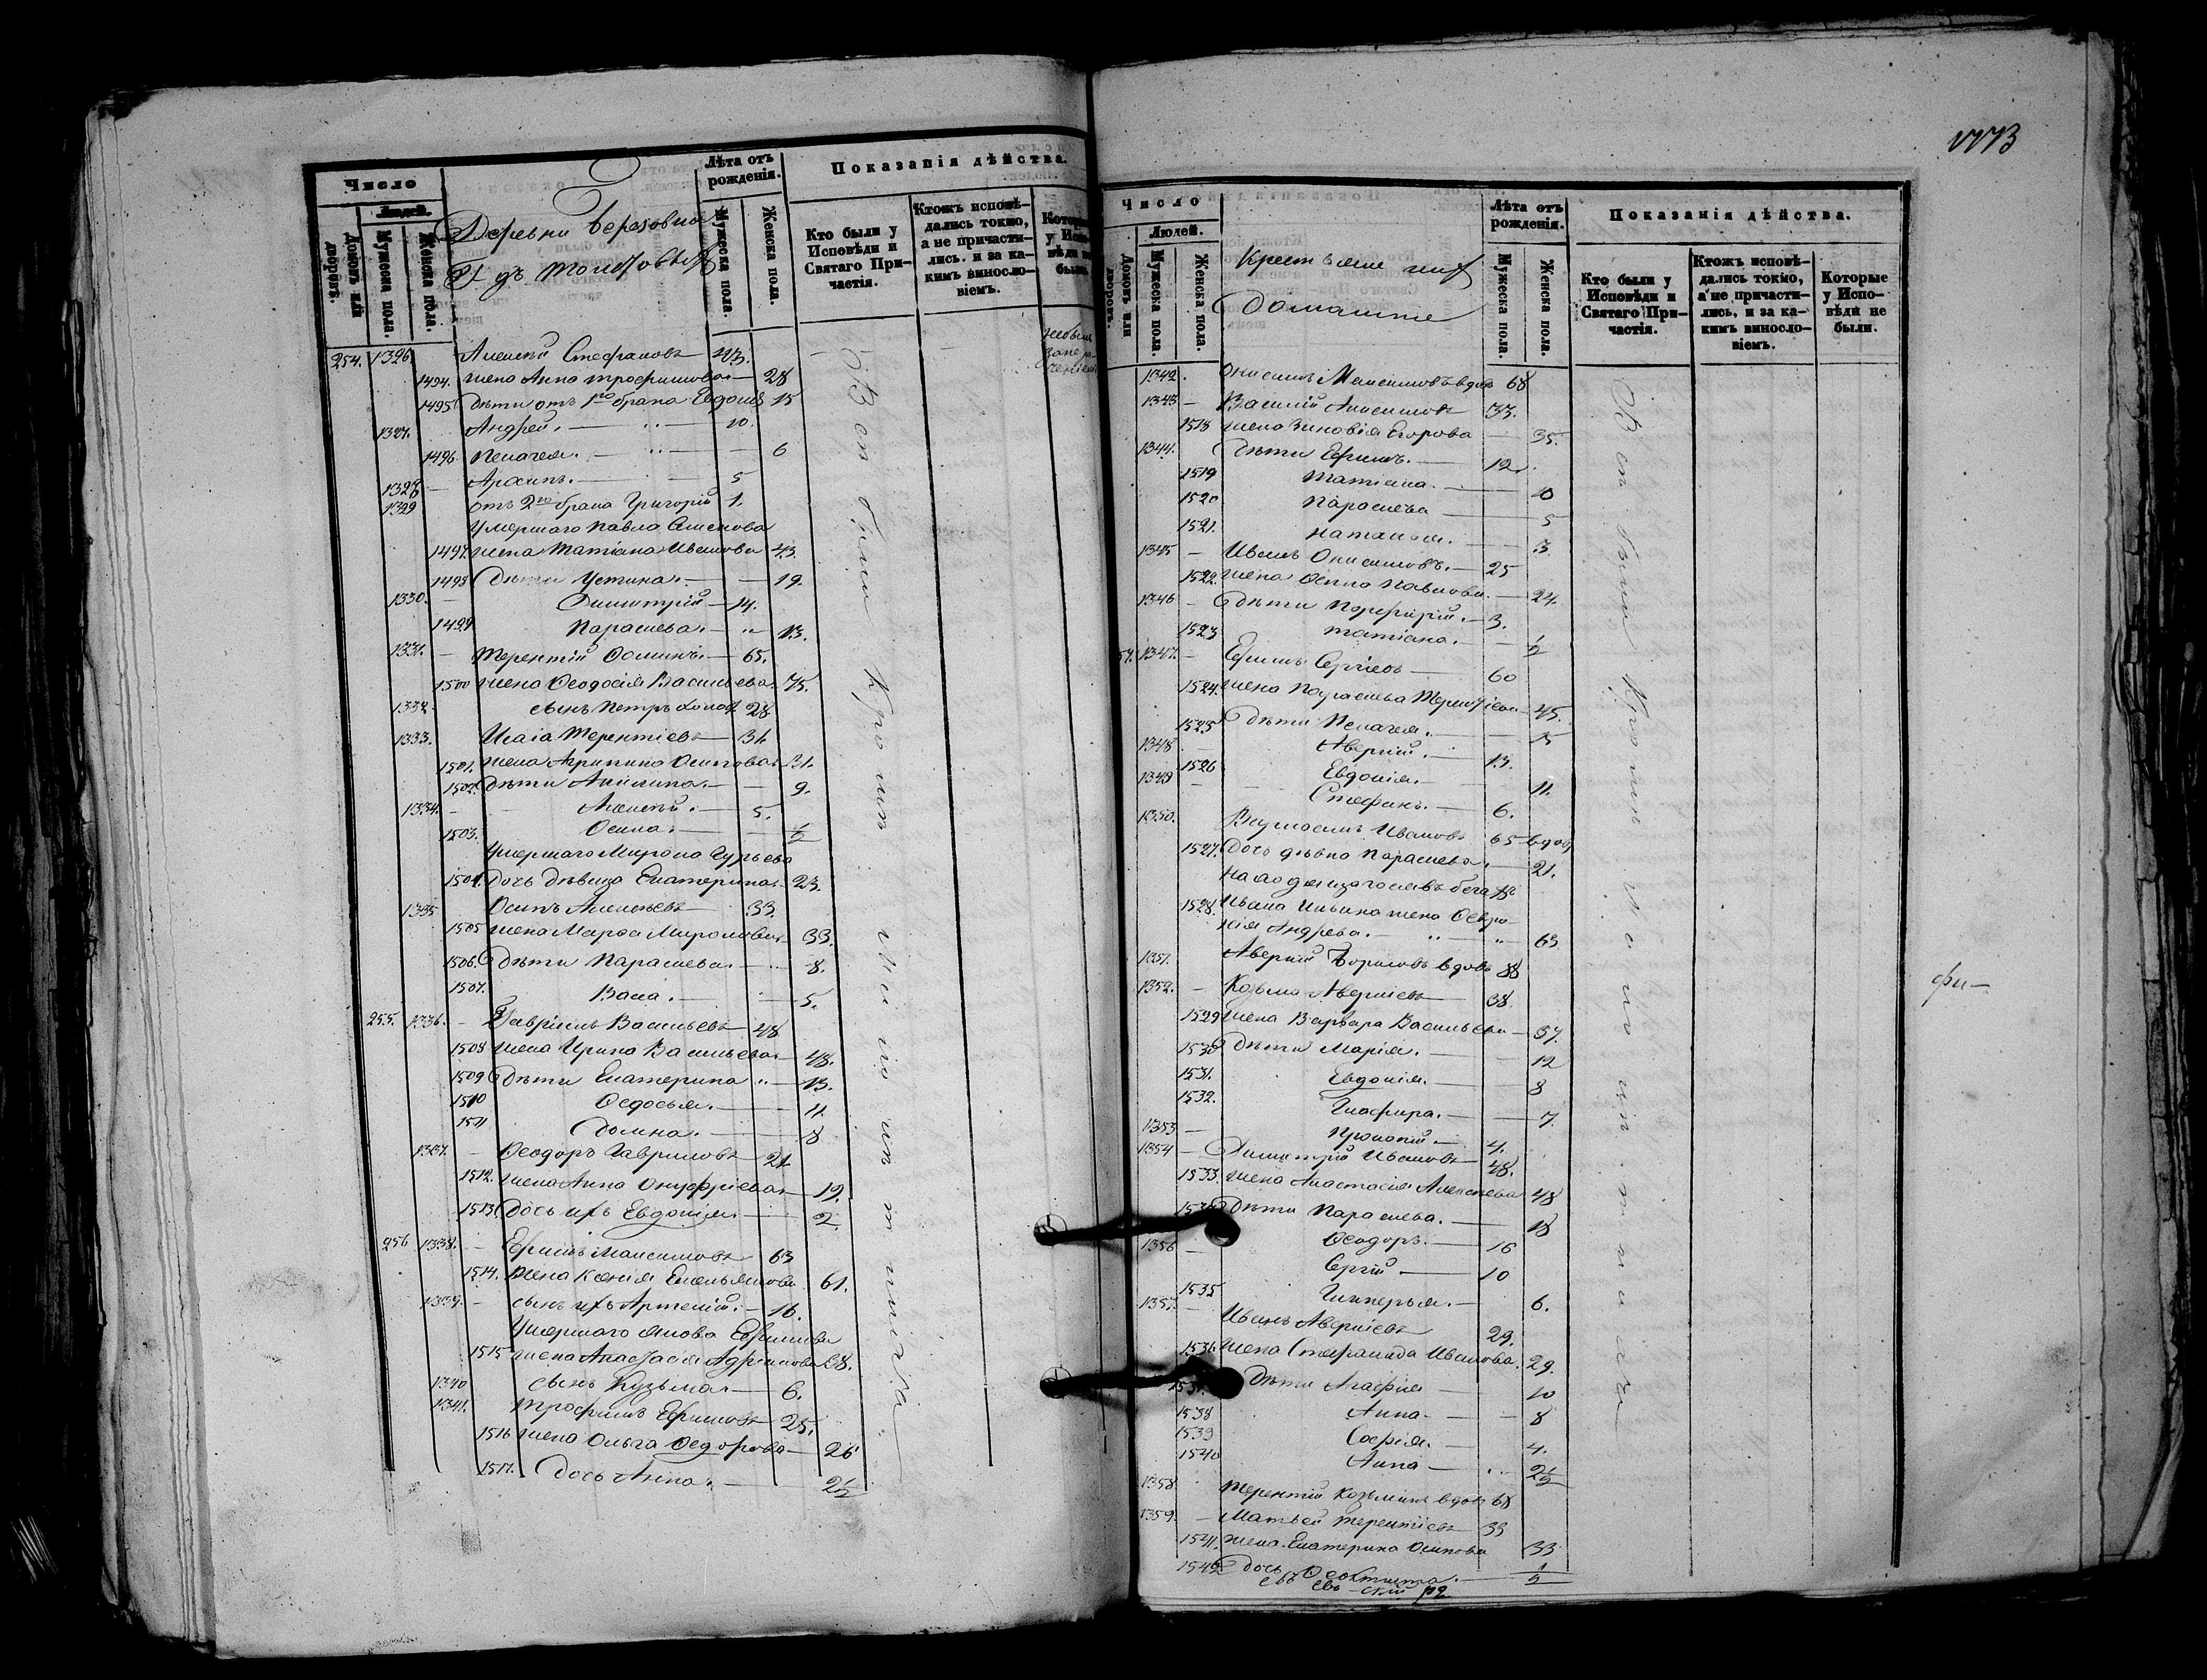 Число
Людей.
Домовъ или дворовъ.
Мужеска пола.
Женска пола.
Деревни Березовка
Г-дъ Толстовыхъ
Лѣта отъ рожденія.
Мужеска пола.
Женска пола.
Показанія дѣйства.
Кто были у Исповѣди и Святаго Причастія.
Ктожъ исповѣдались токмо, а не причастились. и за какимъ винословіемъ.
254. 1326. Алексѣй Стефановъ
1494. жена Анна Трофимова — 28
1495 Дѣти отъ 1го брака Евдокія 15
1327. Андрей. — 10.
1496 Пелагея. — 6
1328 Архипъ. — 5
1329 отъ 2го брака Григорій 1.
Умершаго Павла Семенова
1497. жена Татіана Иванова 43.
1498 Дѣти Устина. — 19.
1330. Димитрій — 14.
1499 Параскева. — 13.
1331. Терентій Фоминъ. — 65.
1500 жена Феодосія Васильева. 75.
1332. сынъ Петръ холост 28
1333. Исаія Терентіевъ — 31.
1501. жена Агрипина Осипова 31.
1502. Дѣти Акилина. — 9.
1334. Алексѣй. — 5.
1503. Фекла. — 1/2
Умершаго Мирона Гурьева
1504. Дочь дѣвица Екатерина. 23.
1335 Осипъ Алексѣевъ 33.
1505 жена Марфа Миронова 33.
1506. Дѣти Параскева. — 8.
1507. Васа. — 5.
255. 1336. — Гавріилъ Васильевъ — 48
1508 жена Ирина Васильева 48.
1509 Дѣти Екатерина — 13.
1510 Федосья. — 11.
1511 Домна. — 8
1337. — Феодоръ Гавриловъ 21
1512. жена Анна Онуфріева — 19.
1513. Дочь ихъ Евдокія. — 2.
256 1338. — Ефимъ Максимовъ 63
1514. Жена Ксенія Емельянова 61.
1339. — сынъ ихъ Артемій. — 16.
Умершаго Якова Ефимова
1515 жена Анастасія Адріянова 38.
1340 сынъ Кузьма — 6.
1341. Трофимъ Ефимовъ 25.
1516 жена Ольга Федорова — 26
1517. Дочь Анна. — 2 1/2
Всѣ были кромѣ
1113
Число
Людей.
Домовъ или дворовъ.
Мужеска пола.
Женска пола.
Крестьяне ихъ
Домашніе
Лѣта отъ рожденія.
Мужеска пола.
Женска пола.
Показанія дѣйства.
Кто были у Исповѣди и Святаго Причастія.
Ктожъ исповѣдались токмо, а не причастились, и за какимъ винословіемъ.
Которые у Исповѣди не были.
1342. Онисимъ Максимовъ вдовъ 68
1343 — Василій Анисимовъ 37.
1518 жена Зиновія Егорова 35.
1344. Дѣти Ефимъ. — 12.
1519 Татіана. — 10
1520 Параскева — 5
1521. Наталія. — 3
1345 — Иванъ Онисимовъ. — 25
1522. жена Фекла Павлова. — 24.
1346 — Дѣти Порфирій. — 3.
1523 Татіана. — 1/2
57. 1347. — Ефимъ Сергіевъ — 60
1524. жена Параскева Терентіева 45.
1525 Дѣти Пелагея.
1348 Аверкій. — 13.
1526 Евдокія. — 11.
1349 — Стефанъ. — 6.
1350. Иванова 65 вдов
1527. Дочь дѣвка Параскева. — 21.
находящагося въ бегахъ
1528. Ивана Ильина жена Февронія Андреева. — 63
1351. Аверкій Борисовъ вдовъ 88
1352. — Козьма Аверкіевъ 38
1529 жена Варвара Васильева 37.
1530 Дѣти Марія. — 12
1531. Евдокія. — 8
1532. Глафира. — 7.
1353 — Прокопій. — 4.
1354 — Димитрій Ивановъ — 48.
1533. жена Анастасія Алексѣева 48
Дѣти Параскева. — 18
1356 Феодоръ. — 16
Сергій — 10
1535 Гликерья. — 6.
1357. — Иванъ Аверкіевъ 29.
1536 жена Стефанида Иванова. 29.
Дѣти Агафія — 10
1538 Анна. — 8
1539 Софія. — 4.
1540 Анна — 2 1/2
1358. Терентій Козьминъ вдовъ 68
1359. — Матвей Терентіевъ 33
1541. жена Екатерина Осипова 33
1542 Дочь Феоктиста. — 1/2
Всѣ были кромѣ